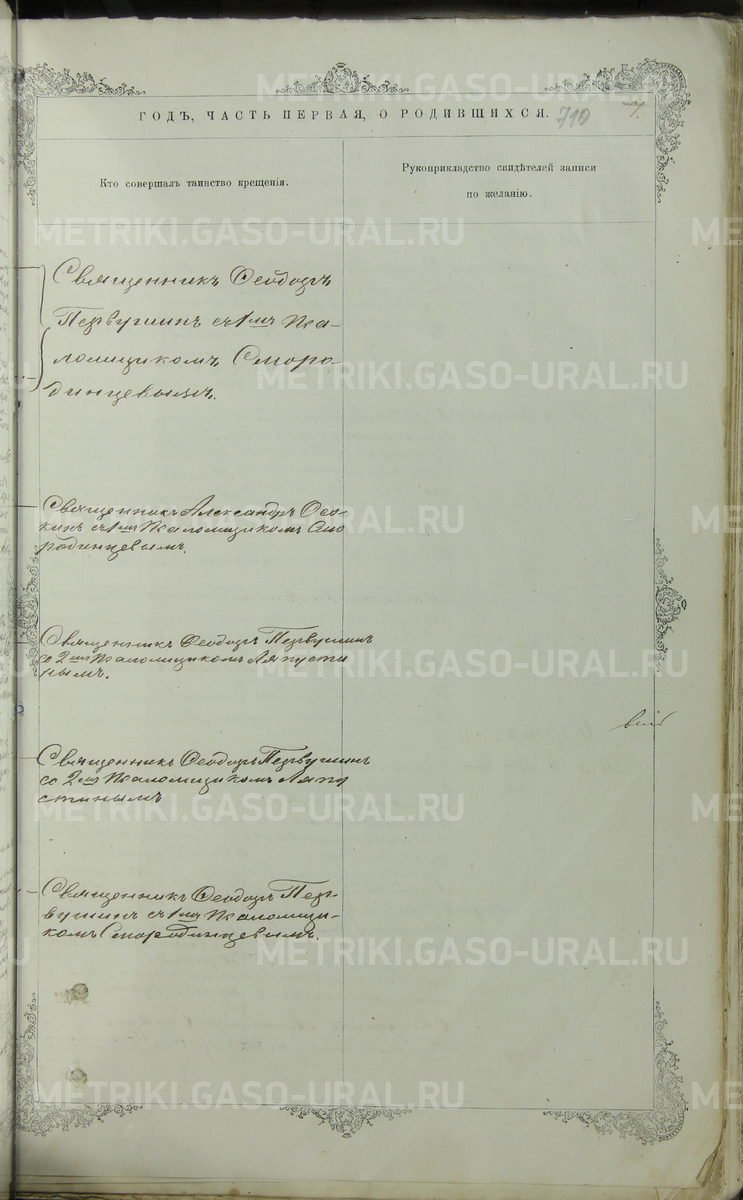 ГОДЪ, ЧАСТЬ ПЕРВАЯ, О РОДИВШИХСЯ. 710 7.
Кто совершалъ таинство крещенія.
Рукоприкладство свидѣтелей записи
по желанію.
Священникъ Ѳеодоръ
Первушинъ съ 1мъ Пса-
ломщикомъ Сморо-
динцевымъ.
Священникъ Александръ Осо-
кинъ съ 1мъ Псаломщикомъ Смо
родинцевымъ.
Священникъ Ѳеодоръ Первушинъ
со 2мъ Псаломщикомъ Ляпусти
нымъ.
Священникъ Ѳеодоръ Первушинъ
со 2мъ Псаломщикомъ Ляпу
стинымъ
Священникъ Ѳеодоръ Пер-
вушинъ съ 1мъ Псаломщи-
комъ Смородинцевымъ.
METRIKI.GASO-URAL.RU